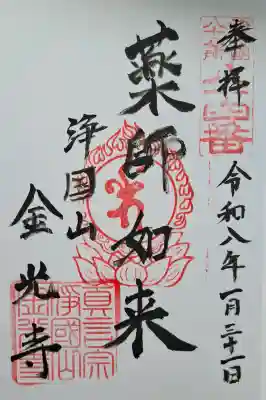 奉拝
令和八年一月三十一日
薬師如来
浄国山
金光寺
真言宗
浄國山
金光寺